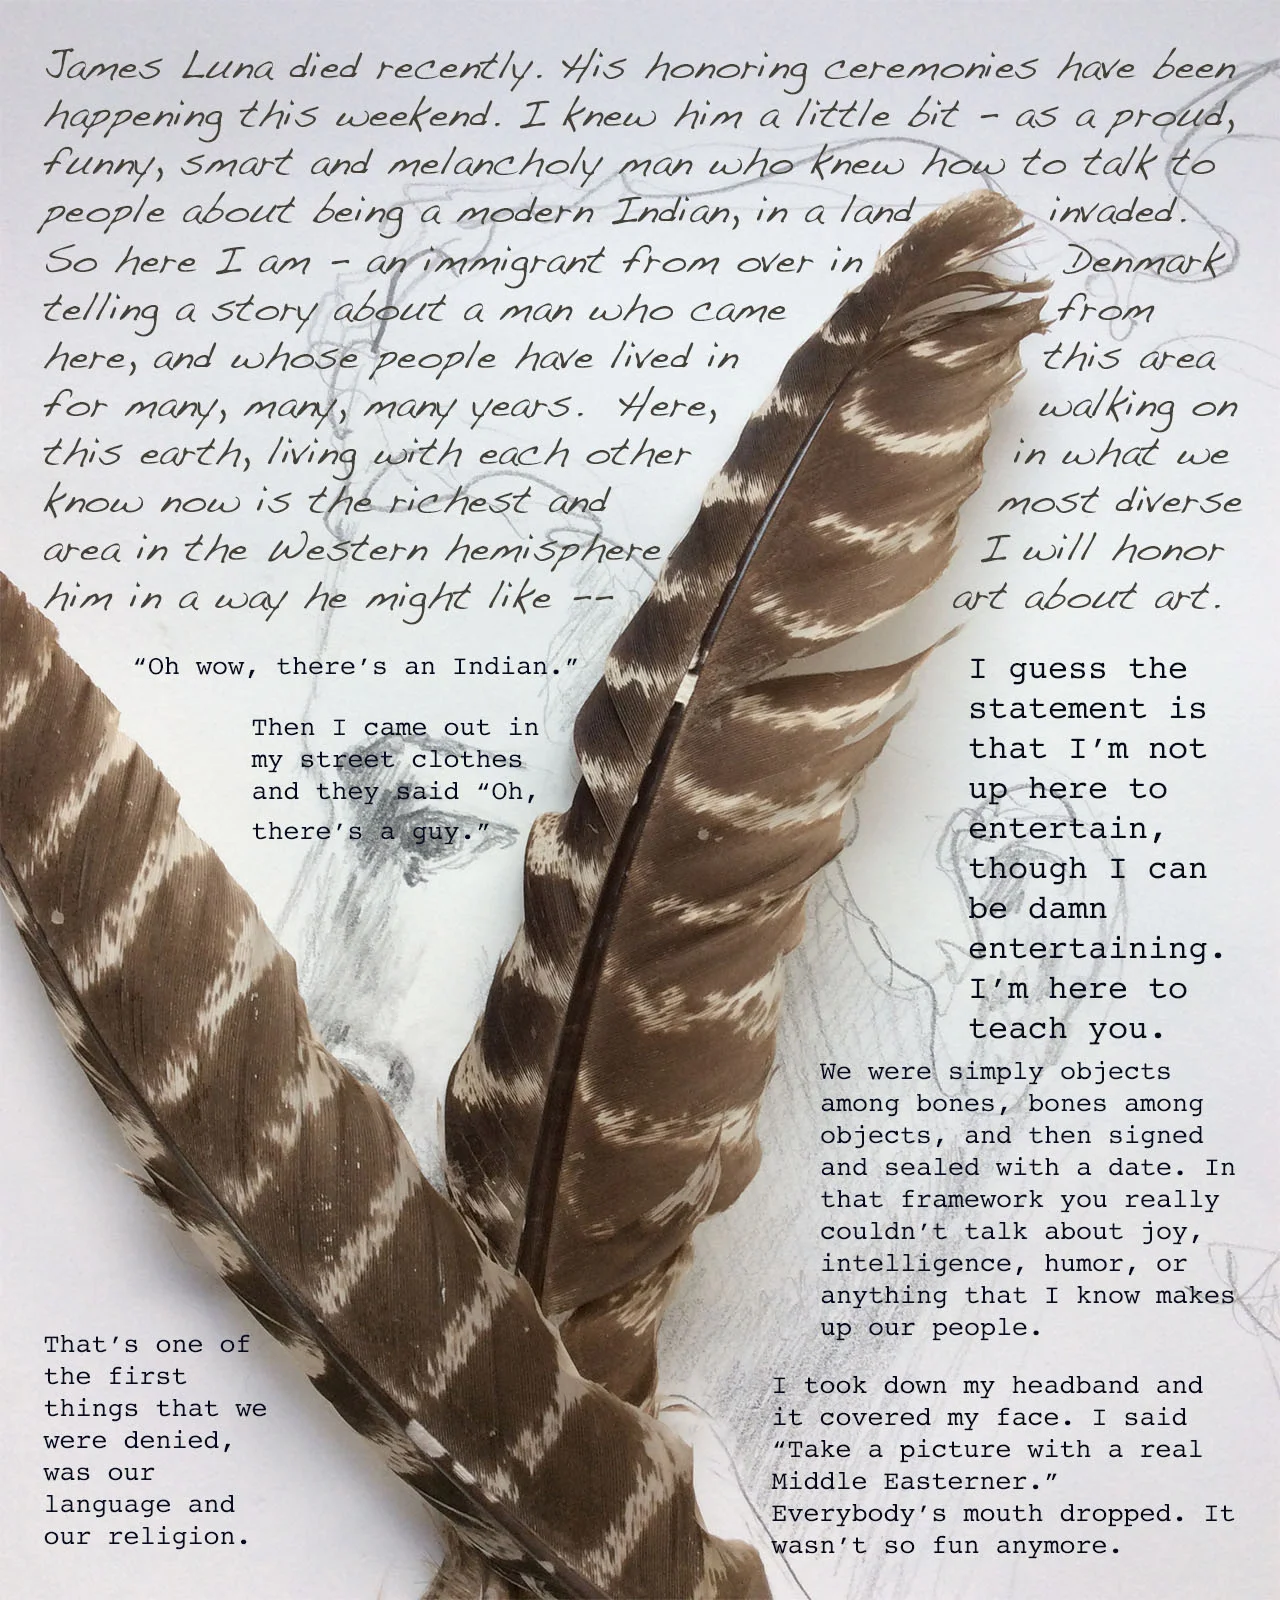 James Luna died recently. His honoring ceremonies have been
happening this weekend. I knew him a little bit - as a proud,
funny, smart and melancholy man who knew how to talk to
people about being a modern Indian, in a land invaded.
So here I am - an immigrant from over in Denmark
telling a story about a man who came from
here, and whose people have lived in this area
for many, many, many years. Here, walking on
this earth, living with each other in what we
know now is the richest and most diverse
area in the Western hemisphere I will honor
him in a way he might like -- art about art.
“Oh wow, there’s an Indian.”
Then I came out in
my street clothes
and they said “Oh,
there’s a guy.”
I guess the
statement is
that I’m not
up here to
entertain,
though I can
be damn
entertaining.
I’m here to
teach you.
We were simply objects
among bones, bones among
objects, and then signed
and sealed with a date. In
that framework you really
couldn’t talk about joy,
intelligence, humor, or
anything that I know makes
up our people.
That’s one of
the first
things that we
were denied,
was our
language and
our religion.
I took down my headband and
it covered my face. I said
“Take a picture with a real
Middle Easterner.”
Everybody’s mouth dropped. It
wasn’t so fun anymore.